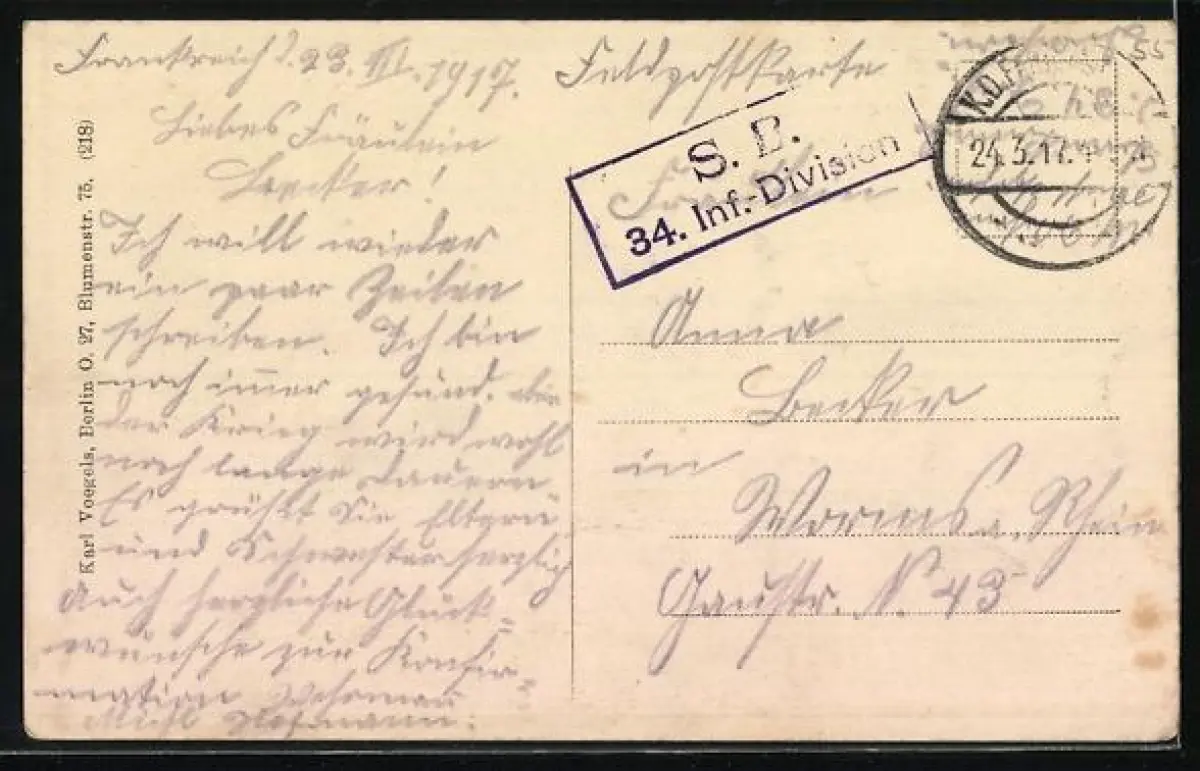 Frankreich d. 23. III. 1917.
Liebes Fräulein
Becker!
Ich will wieder
ein paar Zeilen
schreiben. Ich bin
noch immer gesund. aber
der Krieg wird wohl
noch lange dauern.
Es grüßt Sie Eltern
und Schwester herzlich
Auch herzliche Glück=
wünsche zur Konfir=
mation Wehrman
Hofmann.
Karl Voegels, Berlin O. 27, Blumenstr. 75. (218)
Feldpostkarte
S. B.
34. Inf.-Division
K.D.
24.3.17.
Fräulein
Anna
Becker
in
Worms a. Rhein
Gaustr. N. 43